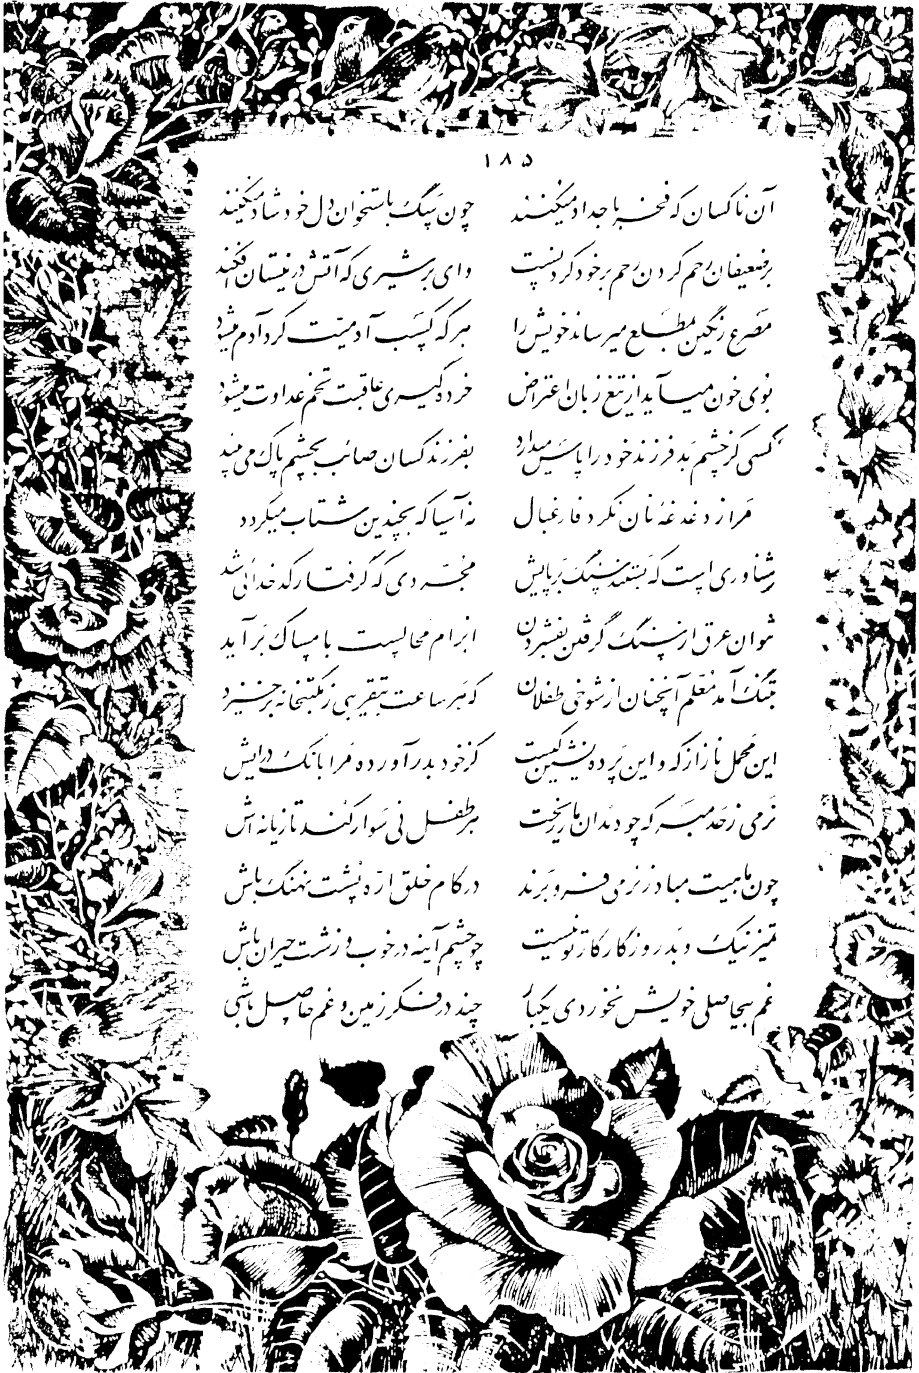 ۱۸۵
آن ناکسان که فخر باجداد میکنند چون سگ باستخوان دل خود شاد میکنند
بر ضعیفان رحم کردن رحم بر خود کردنست وای بر شیری که آتش در نیستان افکند
مصرع رنگین بمطلع میرساند خویش را هر که کسب آدمیت کرد آدم میشود
بوی خون میآید از تیغ زبان اعتراض خرده گیری عاقبت تخم عداوت میشود
کسی کز چشم بد فرزند خود را پاس میدارد بفرزند کسان صائب بچشم پاک می بیند
مرا ز دغدغه نان نکرد فارغبال نه آسیا که بچندین شتاب میگردد
شناوری است که بستند سنگ بر پایش مجردی که گرفتار کدخدائی شد
نتوان عرق از سنگ گرفتن بفشردن ابرام محالست با مساک برآید
بتنگ آمد معلم آنچنان از شوخی طفلان که هر ساعت بتقریبی ز مکتبخانه برخیزد
این محمل ناز از که و این پرده نشین کیست کز خود بدر آورده مرا بانک درایش
نرمی ز حد مبر که چو دندان مار ریخت هر طفل نی سوار کند تازیانه اش
چون ماهیت مباد ز نرمی فرو برند در کام خلق اره پشت نهنگ باش
تمیز نیک و بد روزگار کار تو نیست چو چشم آینه در خوب و زشت حیران باش
غم بیحاصلی خویش نخوردی یکبار چند در فکر زمین و غم حاصل باشی